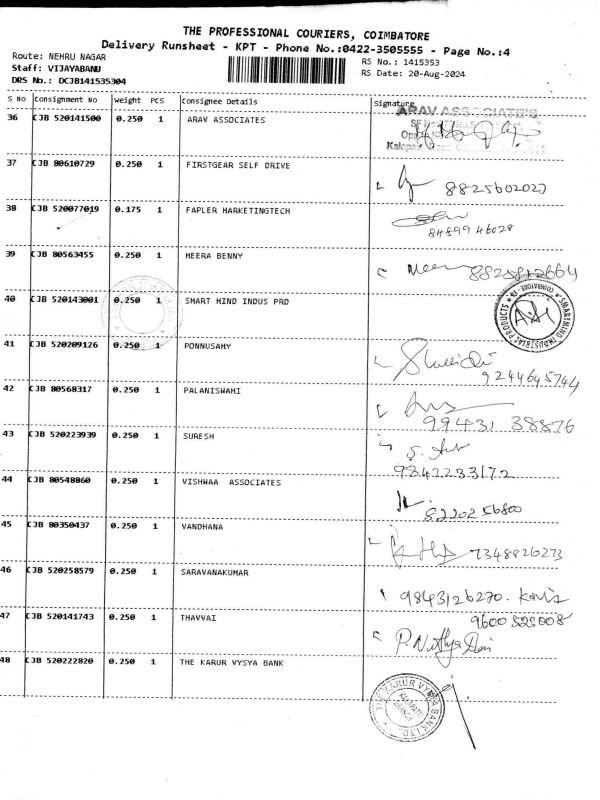 THE PROFESSIONAL COURIERS, COIMBATORE
Delivery Runsheet - KPT - Phone No.:0422-3505555 - Page No.:4
Route: NEHRU NAGAR
Staff: VIJAYABANU
DRS No.: DCJB141535304
RS No.: 1415353
RS Date: 20-Aug-2024
S NO Consignment No Weight PCS Consignee Details Signature
36 CJB 520141500 0.250 1 ARAV ASSOCIATES
ARAV ASSOCIATE'S
37 CJB 80610729 0.250 1 FIRSTGEAR SELF DRIVE
8825602027
38 CJB 520077019 0.175 1 FAPLER MARKETINGTECH
84899 46028
39 CJB 80563455 0.250 1 MEERA BENNY
Meera
40 CJB 520143001 0.250 1 SMART MIND INDUS PRD
SMARTMIND INDUSTRIAL PRODUCTS
41 CJB 520209126 0.250 1 PONNUSAMY
9244645744
42 CJB 80568317 0.250 1 PALANISWAMI
99431 38876
43 CJB 520223939 0.250 1 SURESH
9342233172
44 CJB 80548860 0.250 1 VISHWAA ASSOCIATES
8220256800
45 CJB 80350437 0.250 1 VANDHANA
7348826273
46 CJB 520258579 0.250 1 SARAVANAKUMAR
9843126270.
47 CJB 520141743 0.250 1 THAVVAI
9600523008
P. Nithya Devi
48 CJB 520222820 0.250 1 THE KARUR VYSYA BANK
THE KARUR VYSYA BANK LTD.
KALAPATTI
BRANCH